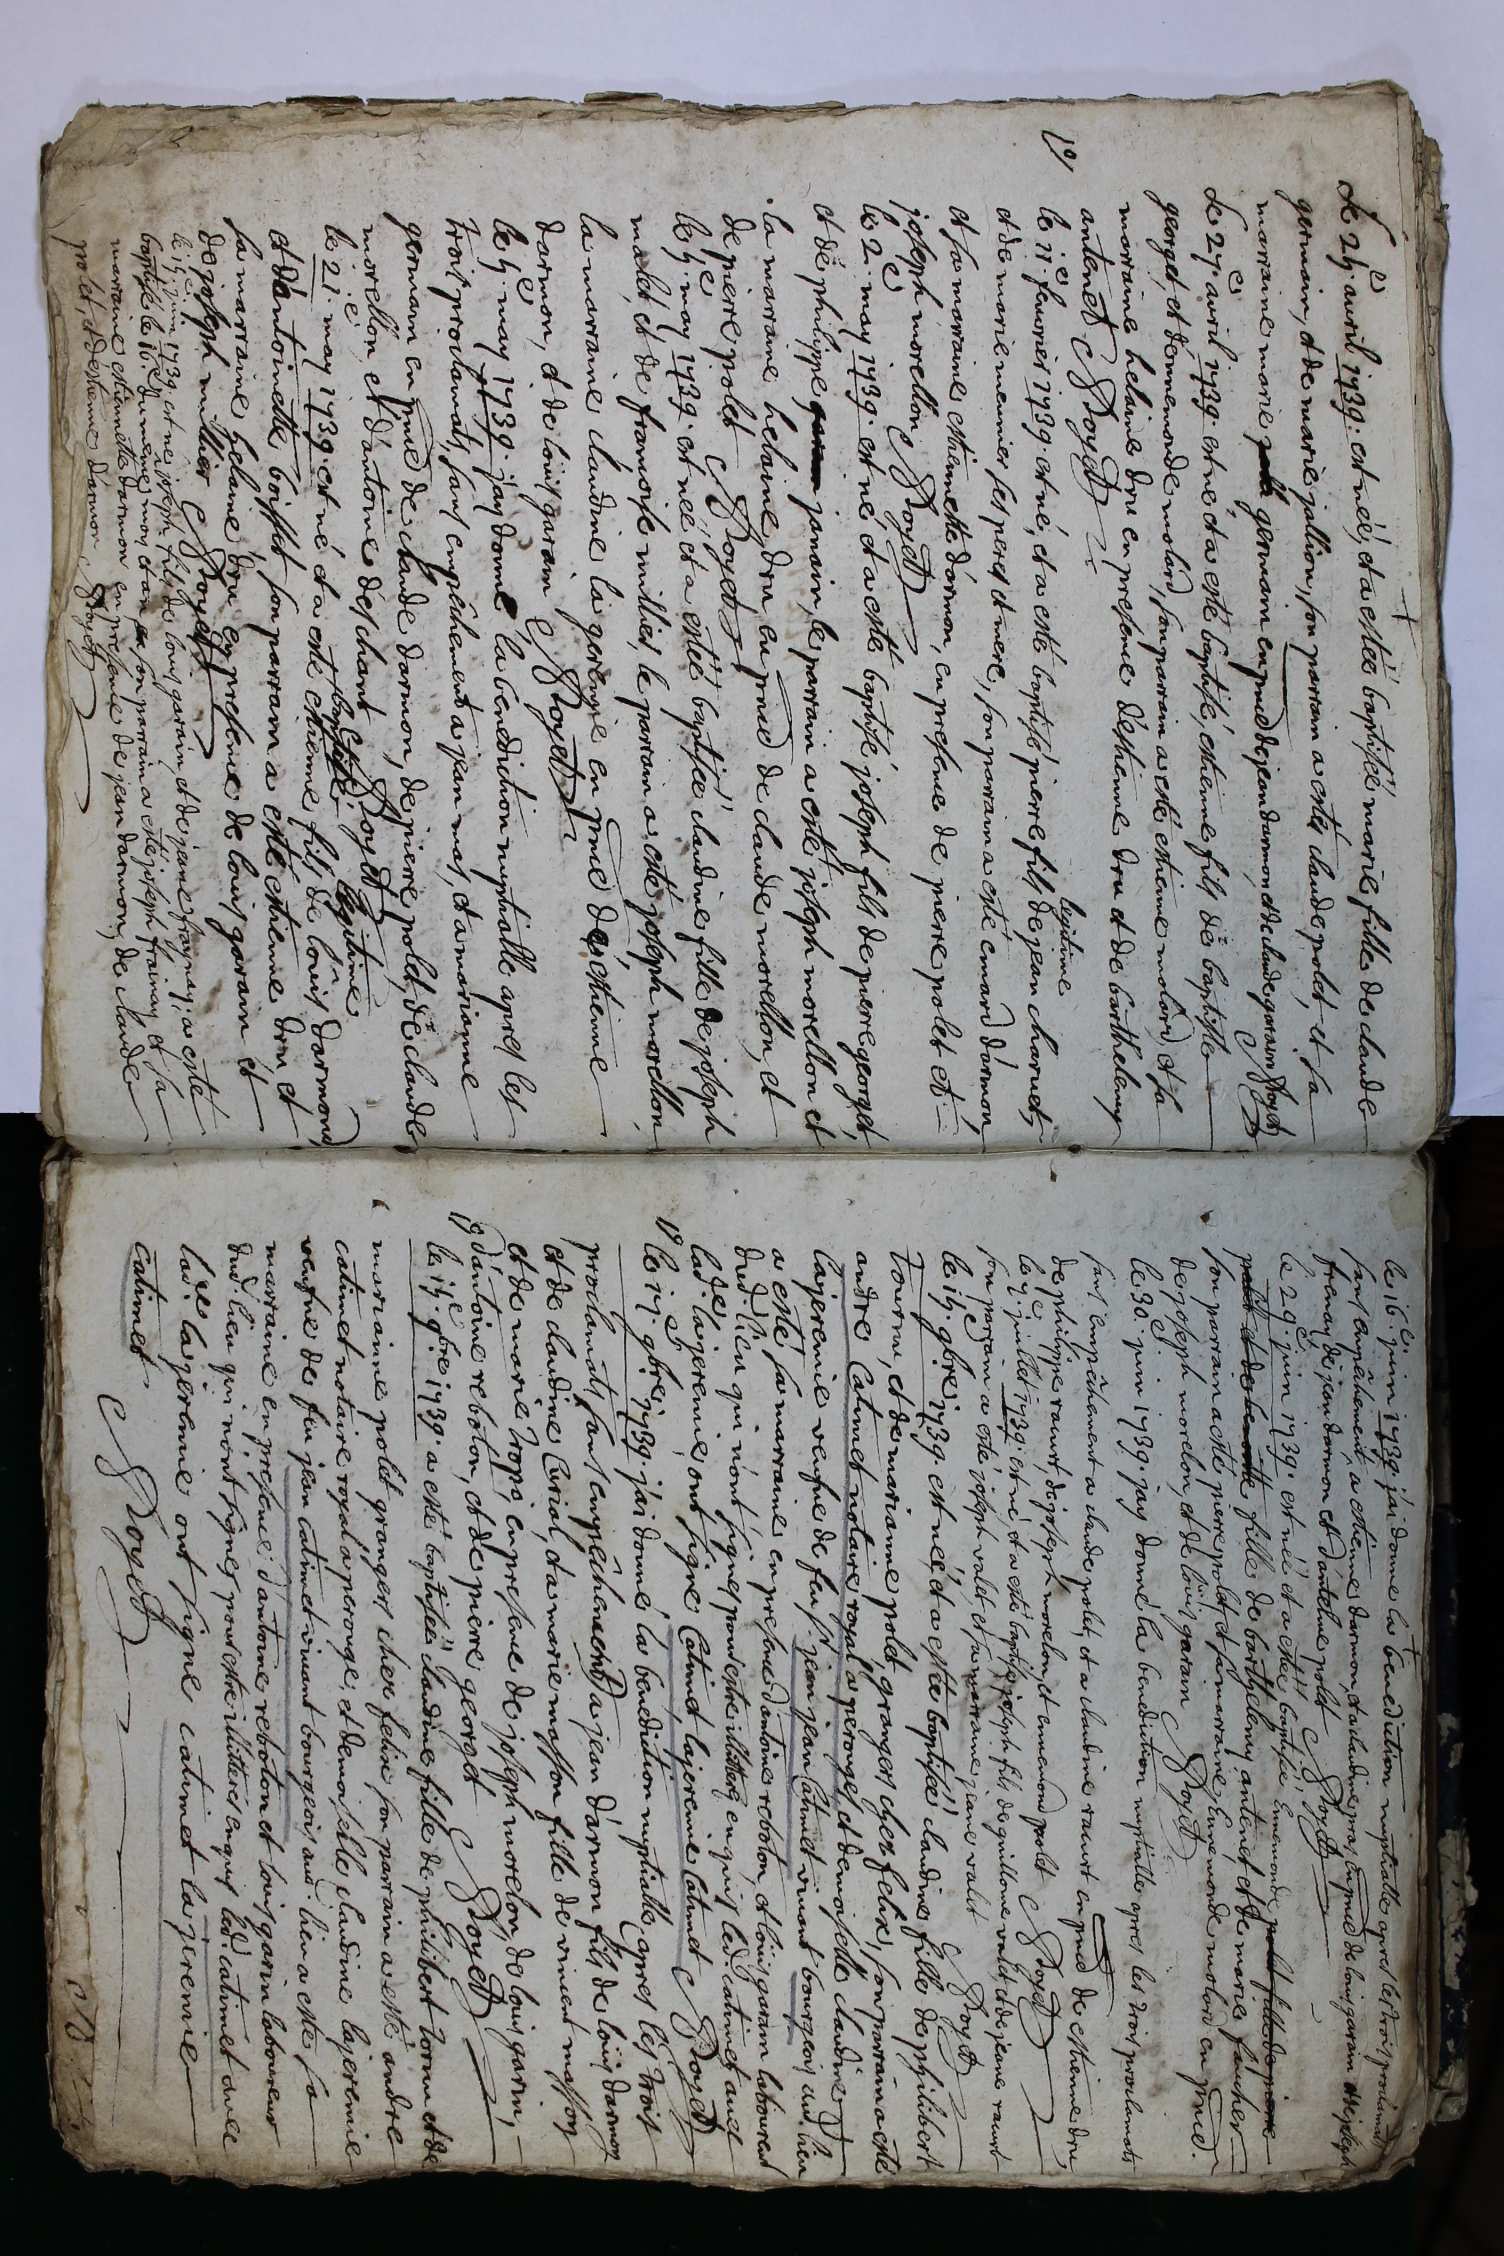 Le 24e avril 1739 est neé, et a esteé baptiseé marie fille de claude
germain, et de marie jallion, son parrain a esté claude polet, et sa
marraine marie germain en pnce de jean darmon, et de claude garain Royet
Le 27e avril 1739 est né, et a esté baptisé, estienne fils de baptiste
georget, et d'ennemonde molard, son parrain a esté estienne molard, et sa
marraine helaine dru en presence d'estienne dru et de barthelemy
antenet Royet
legitime
le 11e fevrier 1739 est né, et a esté baptisé pierre fils de jean charvet,
et de marie meunier ses peres et mere, son parrain a esté emard darmon,
et sa marraine estiennette darmon, en presence de pierre polet et
joseph morellon Royet
le 2e may 1739 est né et a esté baptisé joseph fils de pierre georget,
et de philippe janain, le parrain a esté joseph morellon et
la marraine helaine dru en pnce de claude morellon, et
de pierre polet Royet
le 4e may 1739 est neé, et a esteé baptiseé claudine fille de joseph
malet, et de francoise millier, le parrain a esté joseph morellon,
la marraine claudine la geremie en pnce d'estienne
darmon, et de louis garain Royet
le 4e may 1739 jay donné la benediction nuptialle apres les
trois proclamats, sans empêchement a jean mas, et a marianne
germain en pnce de claude darmon, de pierre polet, de claude
morellon, et d'antoine deschant Royet
baptisé legitime
le 21e may 1739 est né et a esté estienne fils de louis darmond,
et d'antoinette boisset son parrain a esté estienne dru, et
sa marraine helaine dru en presence de louis garain et
de joseph millier Royet
le 15e juin 1739 est né joseph fils de louis garain et de jeane frayney, a esté
baptisé le 16e du meme mois, et an son parrain a esté joseph frainay et sa
marraine estiennette darmon en presence de jean darmon, de claude
polet, et d'estienne darmon Royet
le 16e juin 1739 j'ai donné la benediction nuptialle apres les trois proclamats
sans empêchement, a estienne darmon, et a claudine mas, en pnce de louis garain et joseph
frenay, de jean darmon et d'antelme polet Royet
le 29e juin 1739 est neé et a esteé baptiseé Ennemonde
fille de barthelemy antenet, et de marie faucher
son parrain a esté pierre polet, et sa marraine Ennemonde molard en pnce
de joseph morelon, et de louis garain Royet
le 30e juin 1739 jay donné la benediction nuptialle apres les trois proclamats
sans empêchement a claude polet, et a claudine racurt en pnce de estienne dru
de philippe racurt, de joseph morelon, et ennemond polet Royet
le 9e juillet 1739 est né et a esté baptisé joseph fils de guillome valet, et de jeane racurt
son parrain a esté joseph valet et sa marraine jeane valet Royet
le 14e 9bre 1739 est neé, et a esteé baptiseé claudine fille de philibert
Tournu, et de marianne polet, grangers chez felix, son parrain a esté
andré Catimet notaire royal a peroges et demoiselle claudine
lajeremie veufve de feu sr jean jean Catimet vivant bourgeois aud. lieu
a esté sa marraine en presence d'antoine reboton, et louis garain laboureurs
dud. lieu qui n'ont signes pour estre illitteres en quis led. catimet avec
lad. lajeremie, ont signé Catimet lajeremie Catimet Royet
19 le 17e 9bre 1739 j'ai donné la benediction nuptialle apres les trois
proclamats sans empêchement a jean darmon fils de louis darmon
et de claudine Curial, et a marie masson fille de vincent masson
et de marie Trops, en presence de joseph morelon, de louis garin,
d'antoine reboton, et de pierre georget Royet
19 le 14e 9bre 1739 a esté baptiseé claudine fille de philibert tornu et de
marianne polet grangers chez felix son parrain a esté andré
catimet notaire royal a perouge, et demoiselle claudine lajeremie
veufve de feu jean catimet vivant bourgeois aud. lieu a esté sa
marraine en presence d'antoine reboton et louis garin laboureur
dud. lieu qui n'ont signes pour estre illitteres enquis led. catimet avec
lad.lle lajeremie ont signe catimet lajeremie
catimet Royet